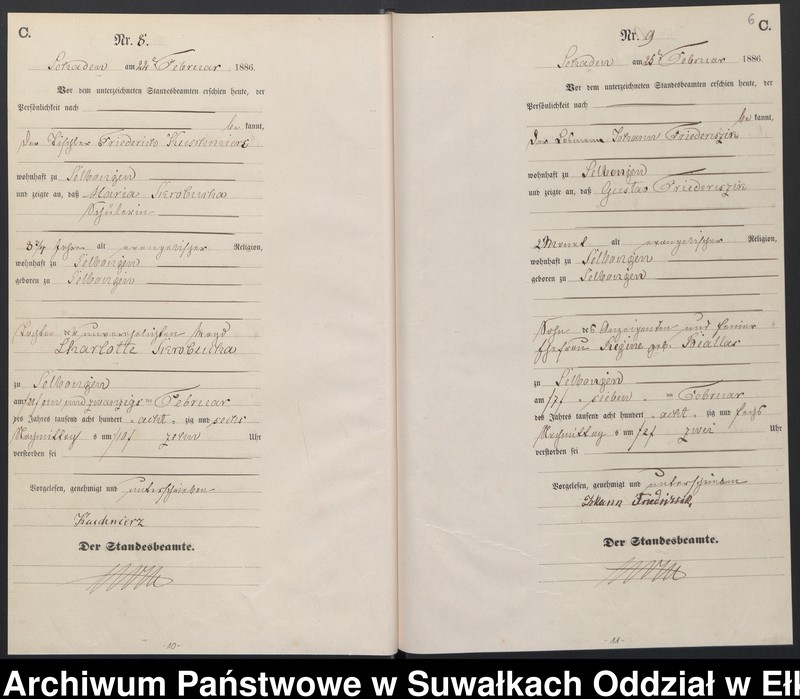 C.
Nr. 8.
am 24. Februar 1886.
Vor dem unterzeichneten Standesbeamten erschien heute, der
Persönlichkeit nach
be kannt,
der Tischler Friedrich
wohnhaft zu Selbongen
und zeigte an, daß Maria Skrobucha
Schülerin
8 3/4 Jahre alt evangelischer Religion,
wohnhaft zu Selbongen
geboren zu Selbongen
Tochter der unverehelichten Magd
Charlotte Skrobucha
zu Selbongen
am ein und zwanzigs ten Februar
des Jahres tausend acht hundert acht zig und sechs
Nachmittag s um /10/ zehn Uhr
verstorben sei
Vorgelesen, genehmigt und unterschrieben
Der Standesbeamte.
- 10 -
6
C.
Nr. 9
am 25. Februar 1886.
Vor dem unterzeichneten Standesbeamten erschien heute, der
Persönlichkeit nach
be kannt,
der Losmann Johann Friederszik
wohnhaft zu Selbongen
und zeigte an, daß Gustav Friederszik
2 Monat alt evangelischer Religion,
wohnhaft zu Selbongen
geboren zu Selbongen
Sohn des Anzeigenden und seiner
Ehefrau Regine geb. Biallas
zu Selbongen
am /7/ sieben ten Februar
des Jahres tausend acht hundert acht zig und sechs
Nachmittag s um /2/ zwei Uhr
verstorben sei
Vorgelesen, genehmigt und unterschrieben
Johann
Der Standesbeamte.
- 11 -
Archiwum Państwowe w Suwałkach Oddział w Eł